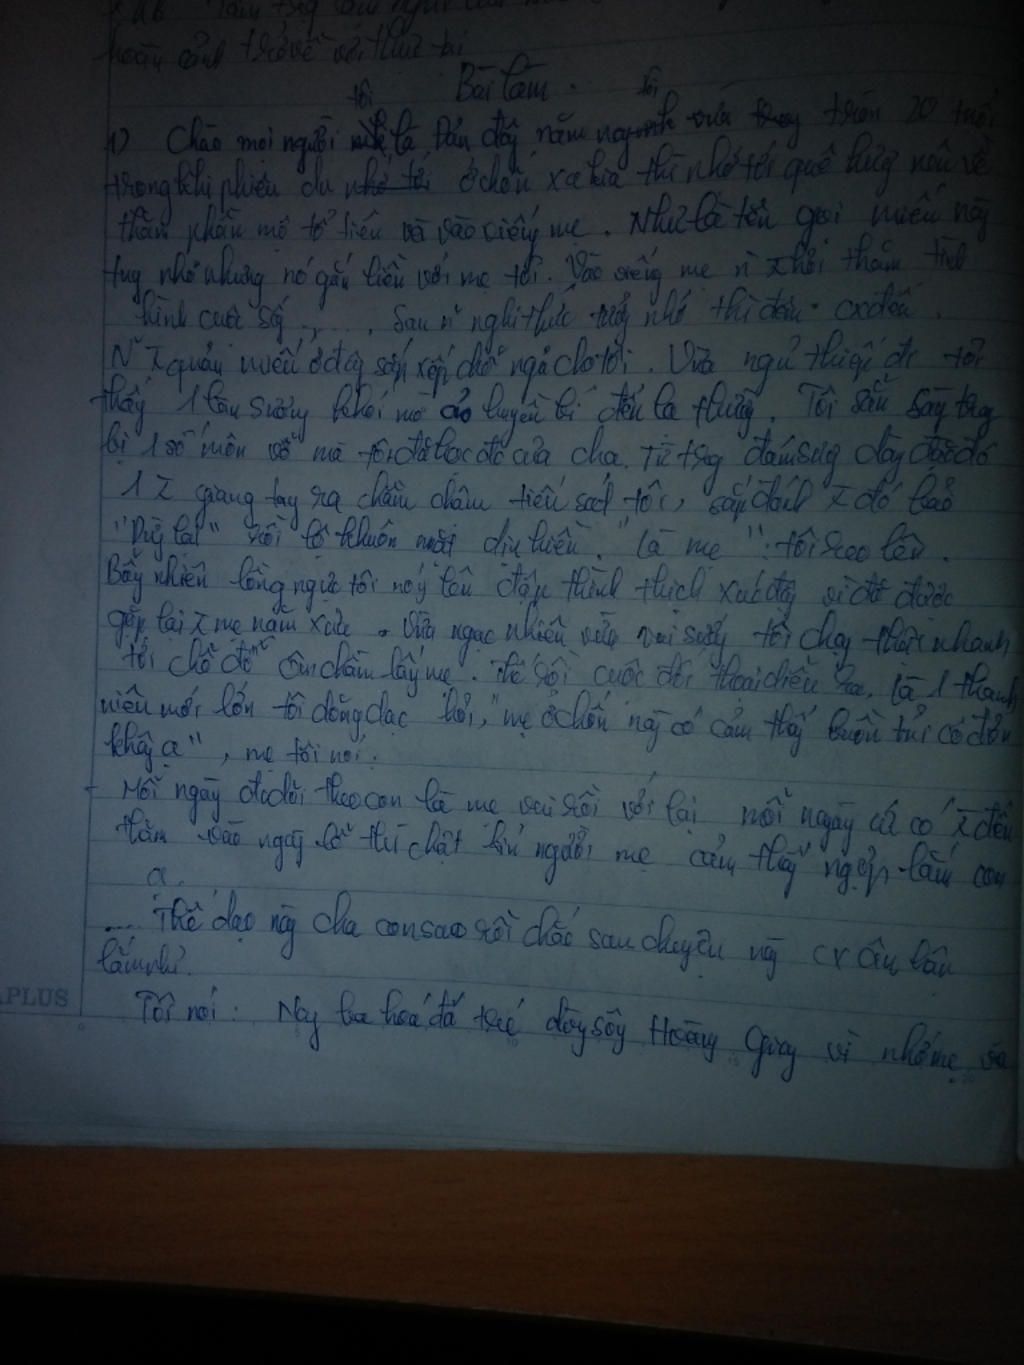 hoàn cảnh trở về với thực tại
Bài làm.
tôi tôi
1) Chào mọi người là Đản đây năm nay vừa tròn 20 tuổi
trong khi phiêu du nhớ tới ở chốn xa kia thì nhớ tới quê hương nên về
thăm phần mộ tổ tiên và vào viếng mẹ. Như là tên gọi miếu này
tuy nhỏ nhưng nó gắn liền với mẹ tôi. Vào viếng mẹ thăm tình
hình cuộc sống ..... Sau nghi thức tưởng nhớ thì đêm cx đến.
quản miếu ở đây sắp xếp chỗ ngủ cho tôi. Vừa ngủ thiếp đi tôi
thấy 1 làn sương khói mờ ảo huyền bí đến lạ thường. Tôi sẵn sàng trang
bị 1 số môn võ mà tôi đã học đc của cha. Từ trong đám sương dày đặc đó
1 giang tay ra chầm chậm tiến sát tôi, đó bảo
"Dừng lại" rồi lộ khuôn mặt dịu hiền. "Là mẹ": tôi reo lên.
Bỗng nhiên lồng ngực tôi đập thình thịch xúc động vì đã được
gặp lại mẹ năm xưa. Vừa ngạc nhiên vừa vui sướng tôi chạy thật nhanh
tới chỗ đó ôm chầm lấy mẹ. Thế rồi cuộc đối thoại diễn ra. Là 1 thanh
niên mới lớn tôi dõng dạc hỏi, "mẹ ở chốn này có cảm thấy buồn tủi cô đơn
không ạ", mẹ tôi nói:
- Mỗi ngày đc dõi theo con là mẹ vui rồi với lại mỗi ngày cứ có đến
thăm vào ngày lễ thì chật kín người mẹ cảm thấy ngộp lắm con
ạ.
.... Thế dạo này cha con sao rồi chắc sau chuyện này cx ân hận
lắm nhỉ.
Tôi nói: Nay ba hoá đá trên dòng sông Hoàng Giang vì nhớ mẹ và
APLUS